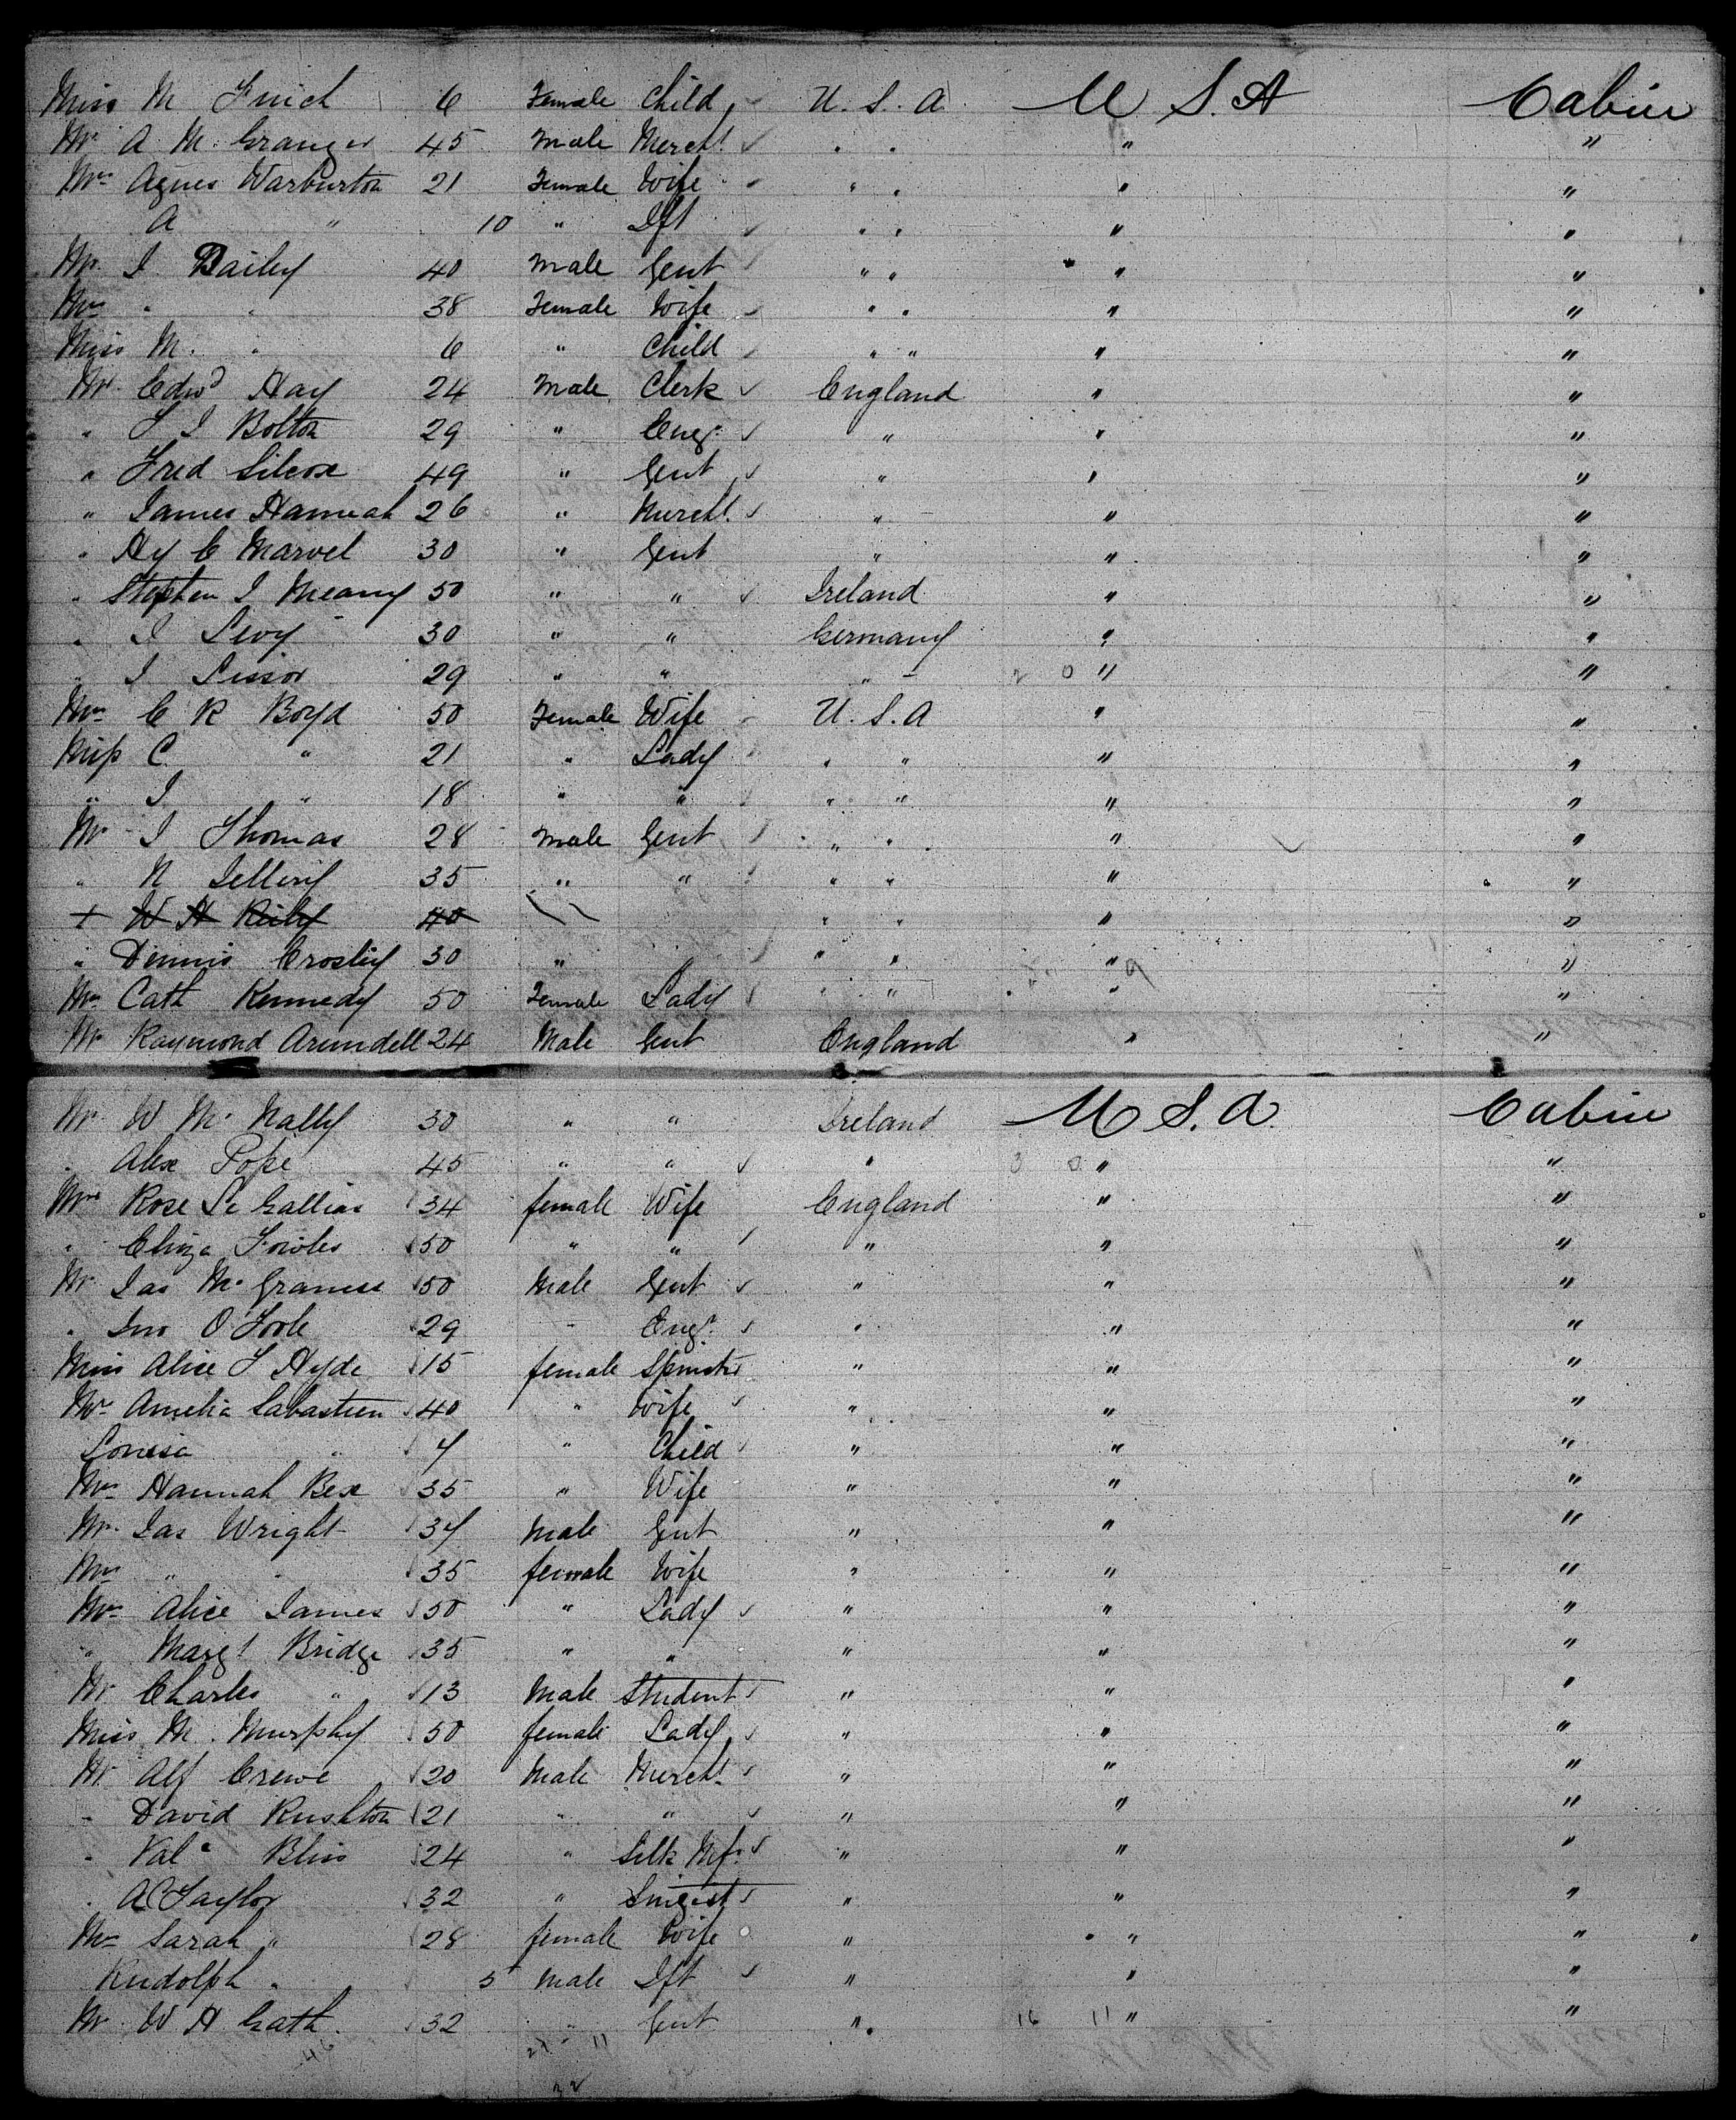 Miss M Finch 6 Female Child U.S.A U S.A Cabin
Mr A M. Granger 45 Male Mercht. " " " "
Mrs Agnes Warburton 21 Female Wife " " " "
A " 10 " Ift " " " "
Mr. J Bailey 40 Male Gent " " " "
Mrs " " 38 Female Wife " " " "
Miss M. " 6 " Child " " " "
Mr. Edwd Hay 24 Male Clerk England " "
" J J Bolton 29 " Engr. " " "
" Fred Silcox 49 " Gent " " "
" James Hannah 26 " Mercht. " " "
" Hy C Marvel 30 " Gent " " "
" Stephen J Meany 50 " " Ireland " "
" J Levy 30 " " Germany " "
" J Lissor 29 " " " 2 0 " "
Mrs C R Boyd 50 Female Wife U.S.A " "
Miss C " 21 " Lady " " " "
" J " 18 " " " " " "
Mr J Thomas 28 Male Gent " " " "
" N 35 " " " " " "
+ W H Reily 40 " " " "
" Dennis Crosby 30 " " " " " "
Mrs Cath Kennedy 50 Female Lady " " " "
Mr Raymond Arundell 24 Male Gent England " "
Mr W Mc Nally 30 " " Ireland U S.A. Cabin
" Alex Pope 45 " " " 3 0 " "
Mrs Rose Le Gallias 34 female Wife England " "
" Eliza Fowles 50 " " " " "
Mr Jas Mc 50 Male Gent " " "
" Jno O'Toole 29 " Engr. " " "
Miss Alice J Hyde 15 female Spinster " " "
Mrs Amelia Sabastien 40 " Wife " " "
Louisa " 7 " Child " " "
Mrs Hannah Bex 35 " Wife " " "
Mr. Jas Wright 37 Male Gent " " "
Mrs " " 35 female Wife " " "
Mrs Alice James 50 " Lady " " "
" Margt Bridge 35 " " " " "
Mr Charles " 13 Male Student " " "
Miss M. Murphy 50 female Lady " " "
Mr. Alf Crewe 20 Male Mercht. " " "
" David Rushton 21 " " " " "
" Bliss 24 " Silk Mfr. " " "
" A C Taylor 32 " " " "
Mrs Sarah " 28 female Wife " " "
Rudolph " 5 Male Ift " " "
Mr. W H Gath 32 " Gent " 16 11 " "